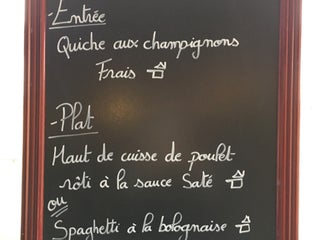 - Entrée
Quiche aux champignons
Frais
- Plat
Haut de cuisse de poulet
rôti à la sauce Saté
ou
Spaghetti à la bolognaise